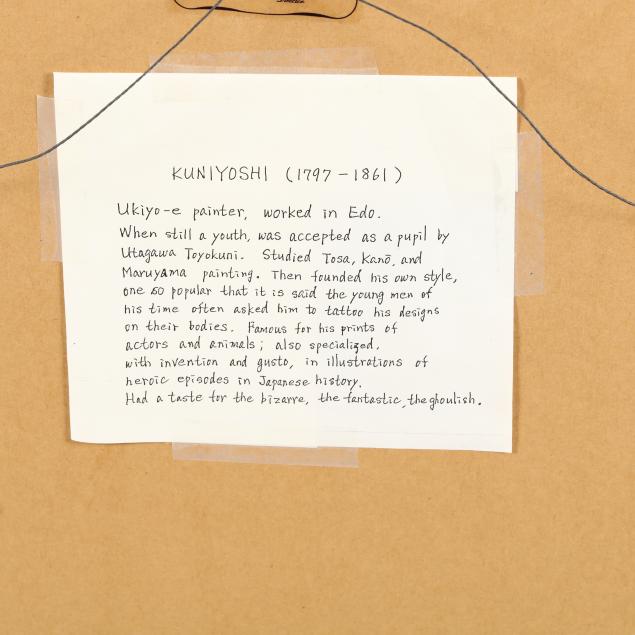 KUNIYOSHI (1797-1861)
Ukiyo-e painter, worked in Edo.
When still a youth, was accepted as a pupil by
Utagawa Toyokuni. Studied Tosa, Kanō, and
Maruyama painting. Then founded his own style,
one so popular that it is said the young men of
his time often asked him to tattoo his designs
on their bodies. Famous for his prints of
actors and animals; also specialized,
with invention and gusto, in illustrations of
heroic episodes in Japanese history.
Had a taste for the bizarre, the fantastic, the ghoulish.